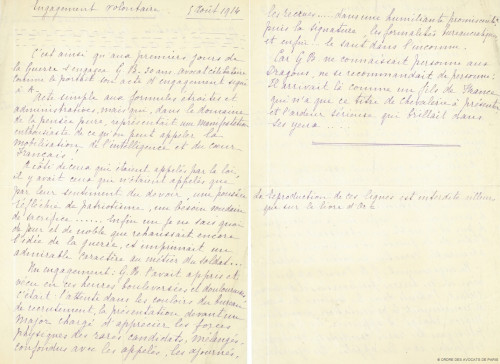 Engagement Volontaire 5 Août 1914
C'est ainsi qu'aux premiers jours de
la Guerre s'engagea G.B. 30 ans, avocat célibataire
comme le portait son acte d'engagement et signé
Acte simple aux formules étroites et
administratives, mais qui, dans le domaine
de la pensée pure, représentait une manifestation
enthousiaste de ce qu'on peut appeler la
mobilisation de l'intelligence et du cœur
Français.
A côté de ceux qui étaient appelés par la loi,
il y avait ceux qui n'étaient appelés que
par leur sentiment du devoir, une poussée
réfléchie du patriotisme, un besoin
de sacrifice...... Enfin un je ne sais quoi
de pur et de noble que rehaussait encore
l'idée de la guerre, et imprimait un
admirable caractère au métier du soldat...
Un engagement: G.B. l'avait appris et
vécu en ces heures bouleversées et douloureuses
c'était: l'attente dans les couloirs du bureau
de recrutement, la présentation devant un
Major chargé d'apprécier les forces
physiques des rares candidats, mélangés,
confondus avec les appelés, les ajournés,
les recours.... dans une humiliante promiscuité
puis la signature, les formalités bureaucratiques
et enfin le saut dans l'inconnu.
Car G.B. ne connaissait personne aux
Dragons, ne se recommandait de personne.
Il arrivait là comme un fils de France
qui n'a que ce titre de chevalerie à présenter
et l'ardeur sérieuse qui brillait dans
ses yeux....
La Reproduction de ces lignes est interdite ailleurs
que sur le livre d'Or
© ORDRE DES AVOCATS DE PARIS